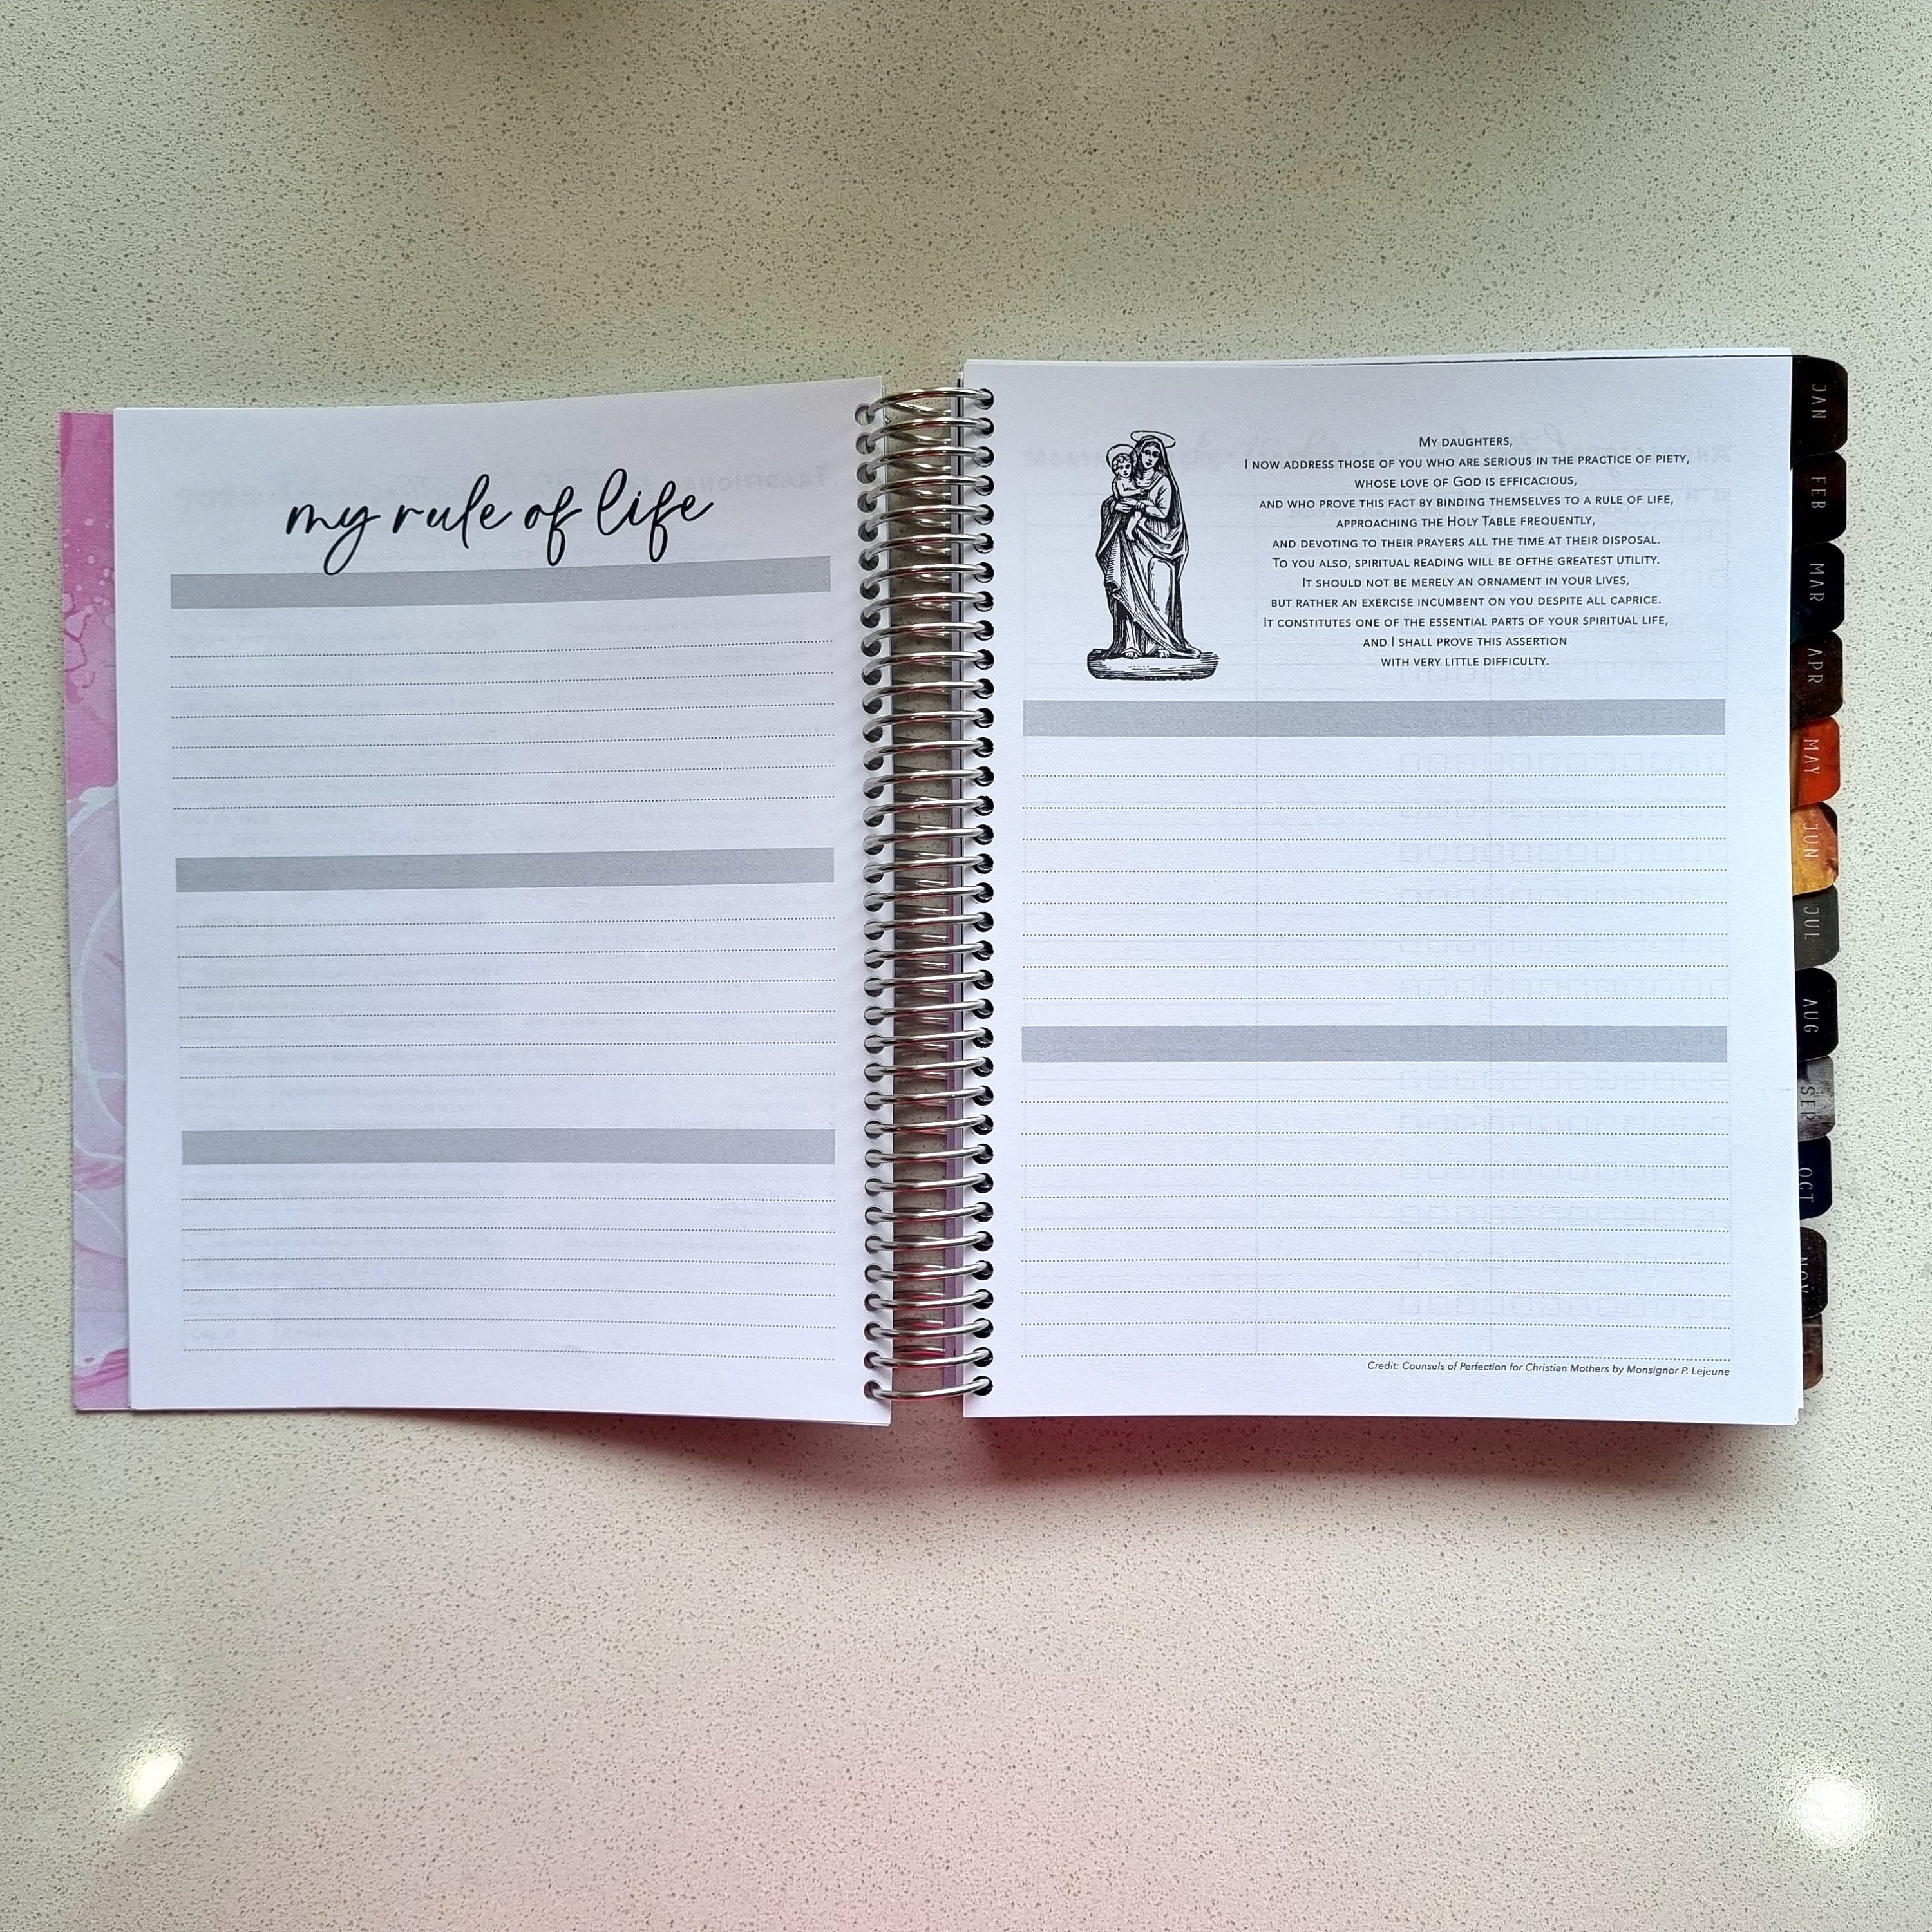 my rule of life
My daughters,
I now address those of you who are serious in the practice of piety,
whose love of God is efficacious,
and who prove this fact by binding themselves to a rule of life,
approaching the Holy Table frequently,
and devoting to their prayers all the time at their disposal.
To you also, spiritual reading will be ofthe greatest utility.
It should not be merely an ornament in your lives,
but rather an exercise incumbent on you despite all caprice.
It constitutes one of the essential parts of your spiritual life,
and I shall prove this assertion
with very little difficulty.
Credit: Counsels of Perfection for Christian Mothers by Monsignor P. Lejeune
JAN
FEB
MAR
APR
MAY
JUN
JUL
AUG
SEP
OCT
NOV